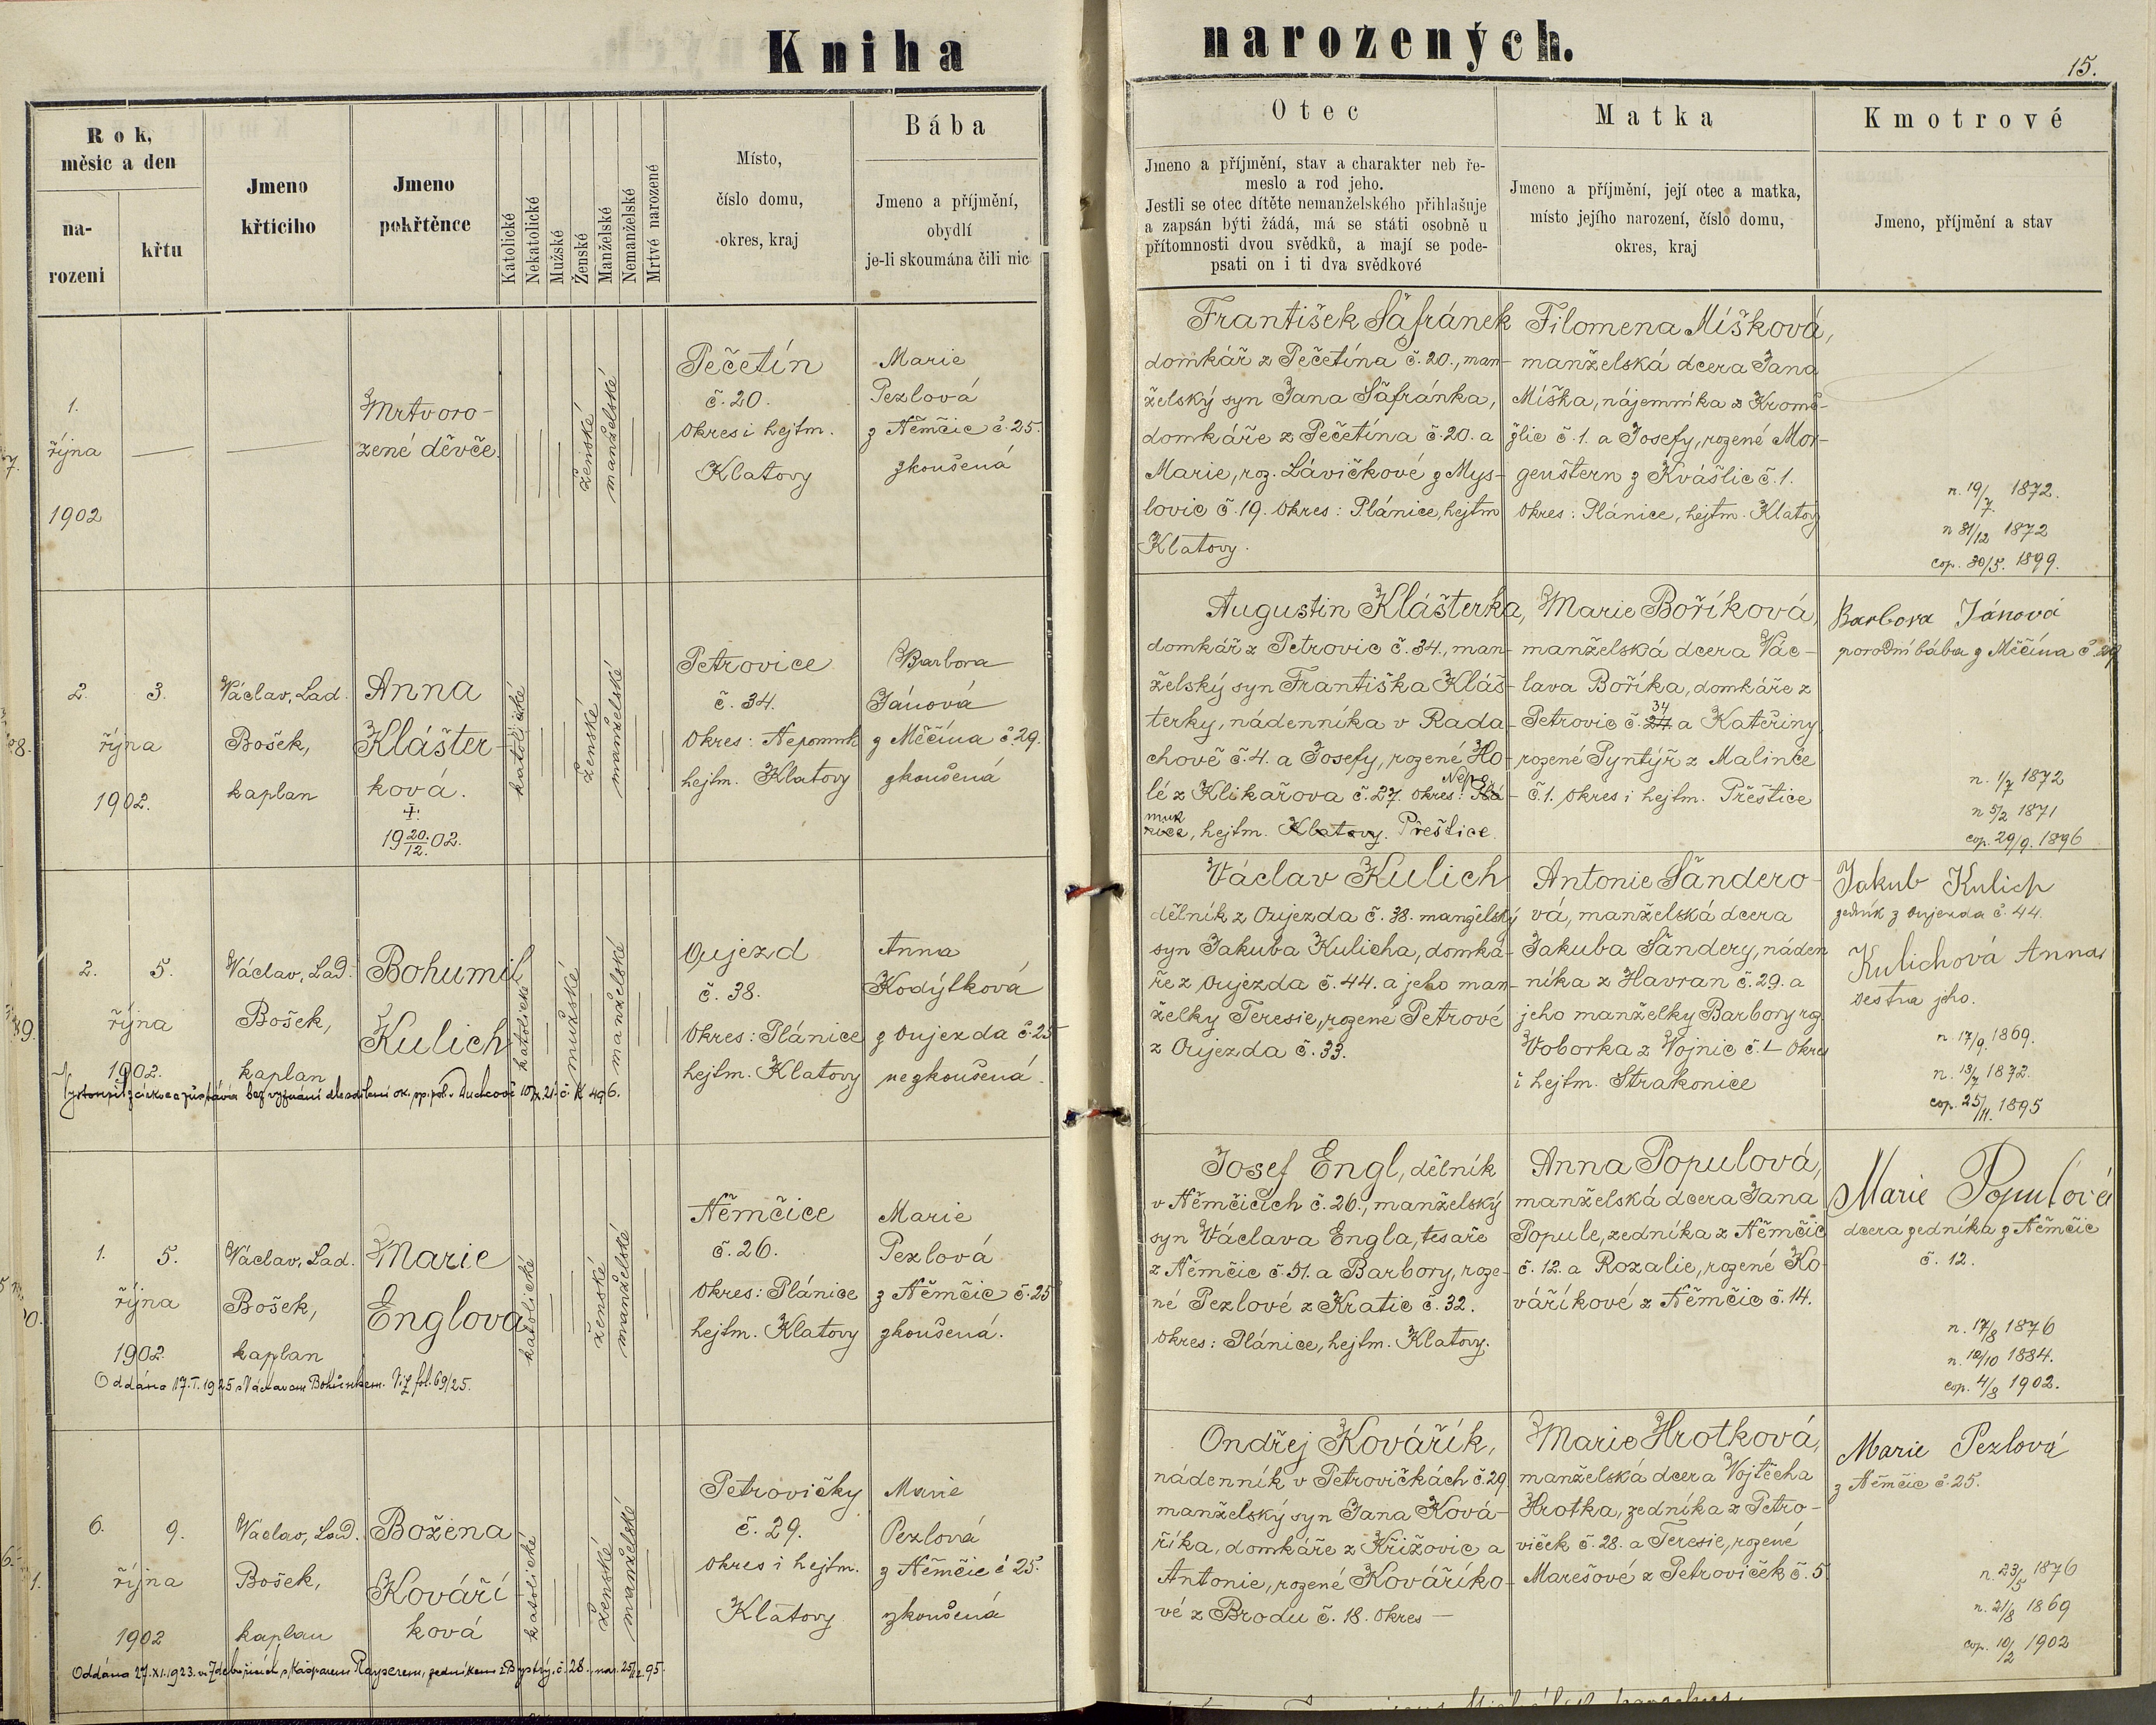 Kniha narozených.
15.
Rok, měsíc a den
narození
křtu
Jmeno křtícího
Jmeno pokřtěnce
Katolické
Nekatolické
Mužské
Ženské
Manželské
Nemanželské
Mrtvé narozené
Místo,
číslo domu,
okres, kraj
Bába
Jmeno a příjmění,
obydlí
je-li skoumána čili nic
Otec
Jmeno a příjmění, stav a charakter neb ře-
meslo a rod jeho.
Jestli se otec dítěte nemanželského přihlašuje
a zapsán býti žádá, má se státi osobně u
přítomnosti dvou svědků, a mají se pode-
psati on i ti dva svědkové
Matka
Jmeno a příjmění, její otec a matka,
místo jejího narození, číslo domu,
okres, kraj
Kmotrové
Jmeno, příjmění a stav
1.
října
1902
Mrtvoro-
zené děvče.
ženské
manželské
Pečetín
č. 20.
Okres i hejtm.
Klatovy
Marie
Pezlová
z Němčic č. 25.
zkoušená
František Šafránek
domkář z Pečetína č. 20., man-
želský syn Jana Šafránka,
domkáře z Pečetína č. 20. a
Marie, roz. Lávičkové z Mys-
lovic č. 19. Okres: Plánice, hejtm
Klatovy.
Filomena Míšková,
manželská dcera Jana
Míška, nájemníka z Kromě-
žlic č. 1. a Josefy, rozené Mor-
genštern z Kvášlic č. 1.
Okres: Plánice, hejtm. Klatovy
n. 19/7. 1872.
n 31/12 1872
cop. 30/5. 1899.
2. 3.
října
1902.
Václav, Lad.
Bošek,
kaplan
Anna
Klášter-
ková.
+
19 20./12. 02.
katolické
ženské
manželské
Petrovice
č. 34.
Okres: Nepomuk
hejtm. Klatovy
Barbora
Jánová
z Měčína č. 29.
zkoušená
Augustin Klášterka,
domkář z Petrovic č. 34., man-
želský syn Františka Kláš-
terky, nádenníka v Rada-
chově č. 4. a Josefy, rozené Ho-
lé z Klikařova č. 27. Okres: Plá- Nepo
nice muk, hejtm. Klatovy. Přeštice.
Marie Boříková,
manželská dcera Vác-
lava Boříka, domkáře z
Petrovic č. 34 a Kateřiny,
rozené Syntýř z Malince
č. 1. Okres i hejtm. Přeštice
Barbora Jánová
porodní bába z Měčína č. 29
n. 1/7 1872
n 5/2 1871
cop. 29/9. 1896
2. 5.
října
1902.
Václav, Lad.
Bošek,
kaplan
Bohumil
Kulich
katolické
mužské
manželské
Oujezd
č. 38.
Okres: Plánice
hejtm. Klatovy
Anna
Kodýlková
z Oujezda č. 25
nezkoušená.
Václav Kulich
dělník z Oujezda č. 38. manželský
syn Jakuba Kulicha, domká-
ře z Oujezda č. 44. a jeho man-
želky Teresie, rozené Petrové
z Oujezda č. 33.
Antonie Šandero-
vá, manželská dcera
Jakuba Šandery, náden
níka z Havran č. 29. a
jeho manželky Barbory roz.
Voborka z Vojnic č. 1 Okres
i hejtm. Strakonice
Jakub Kulich
zedník z Oujezda č. 44.
Kulichová Anna
sestra jeho.
n. 17/9. 1869.
n. 13/7 1872.
cop. 25/11. 1895
Vystoupil z církve a zůstává bez vyznání dle sdělení ok. sp. pol. v Duchcově 10/X. 21. č. K 496.
1. 5.
října
1902.
Václav, Lad.
Bošek,
kaplan
Marie
Englová
katolické
ženské
manželské
Němčice
č. 26.
Okres: Plánice
hejtm. Klatovy
Marie
Pezlová
z Němčic č. 25
zkoušená.
Josef Engl, dělník
v Němčicích č. 26., manželský
syn Václava Engla, tesaře
z Němčic č. 51. a Barbory, roze-
né Pezlové z Kratic č. 32.
Okres: Plánice, hejtm. Klatovy.
Anna Populová,
manželská dcera Jana
Popule, zedníka z Němčic
č. 12. a Rozalie, rozené Ko-
váříkové z Němčic č. 14.
Marie Populová
dcera zedníka z Němčic
č. 12.
n. 17/8 1876
n. 10/10 1884.
cop. 4/8 1902.
Oddána 17. I. 1925 s Václavem Bohůnkem. Viz fol. 69/25.
6. 9.
října
1902
Václav, Lad.
Bošek,
kaplan
Božena
Kováří
ková
katolické
ženské
manželské
Petrovičky
č. 29.
Okres i hejtm.
Klatovy
Marie
Pezlová
z Němčic č 25.
zkoušená
Ondřej Kovářík,
nádenník v Petrovičkách č. 29
manželský syn Jana Ková-
říka, domkáře z Křižovic a
Antonie, rozené Kováříko-
vé z Brodu č. 18. Okres —
Marie Hrotková,
manželská dcera Vojtěcha
Hrotka, zedníka z Petro-
viček č. 28. a Teresie, rozené
Marešové z Petroviček č. 5.
Marie Pezlová
z Němčic č. 25.
n. 23/5 1876
n. 21/8 1869
cop. 10/2 1902
Oddána 27. XI. 1923. ve Zdebořicích s Kašparem Rayserem, zedníkem z Bystrý. č. 28. nar. 95.